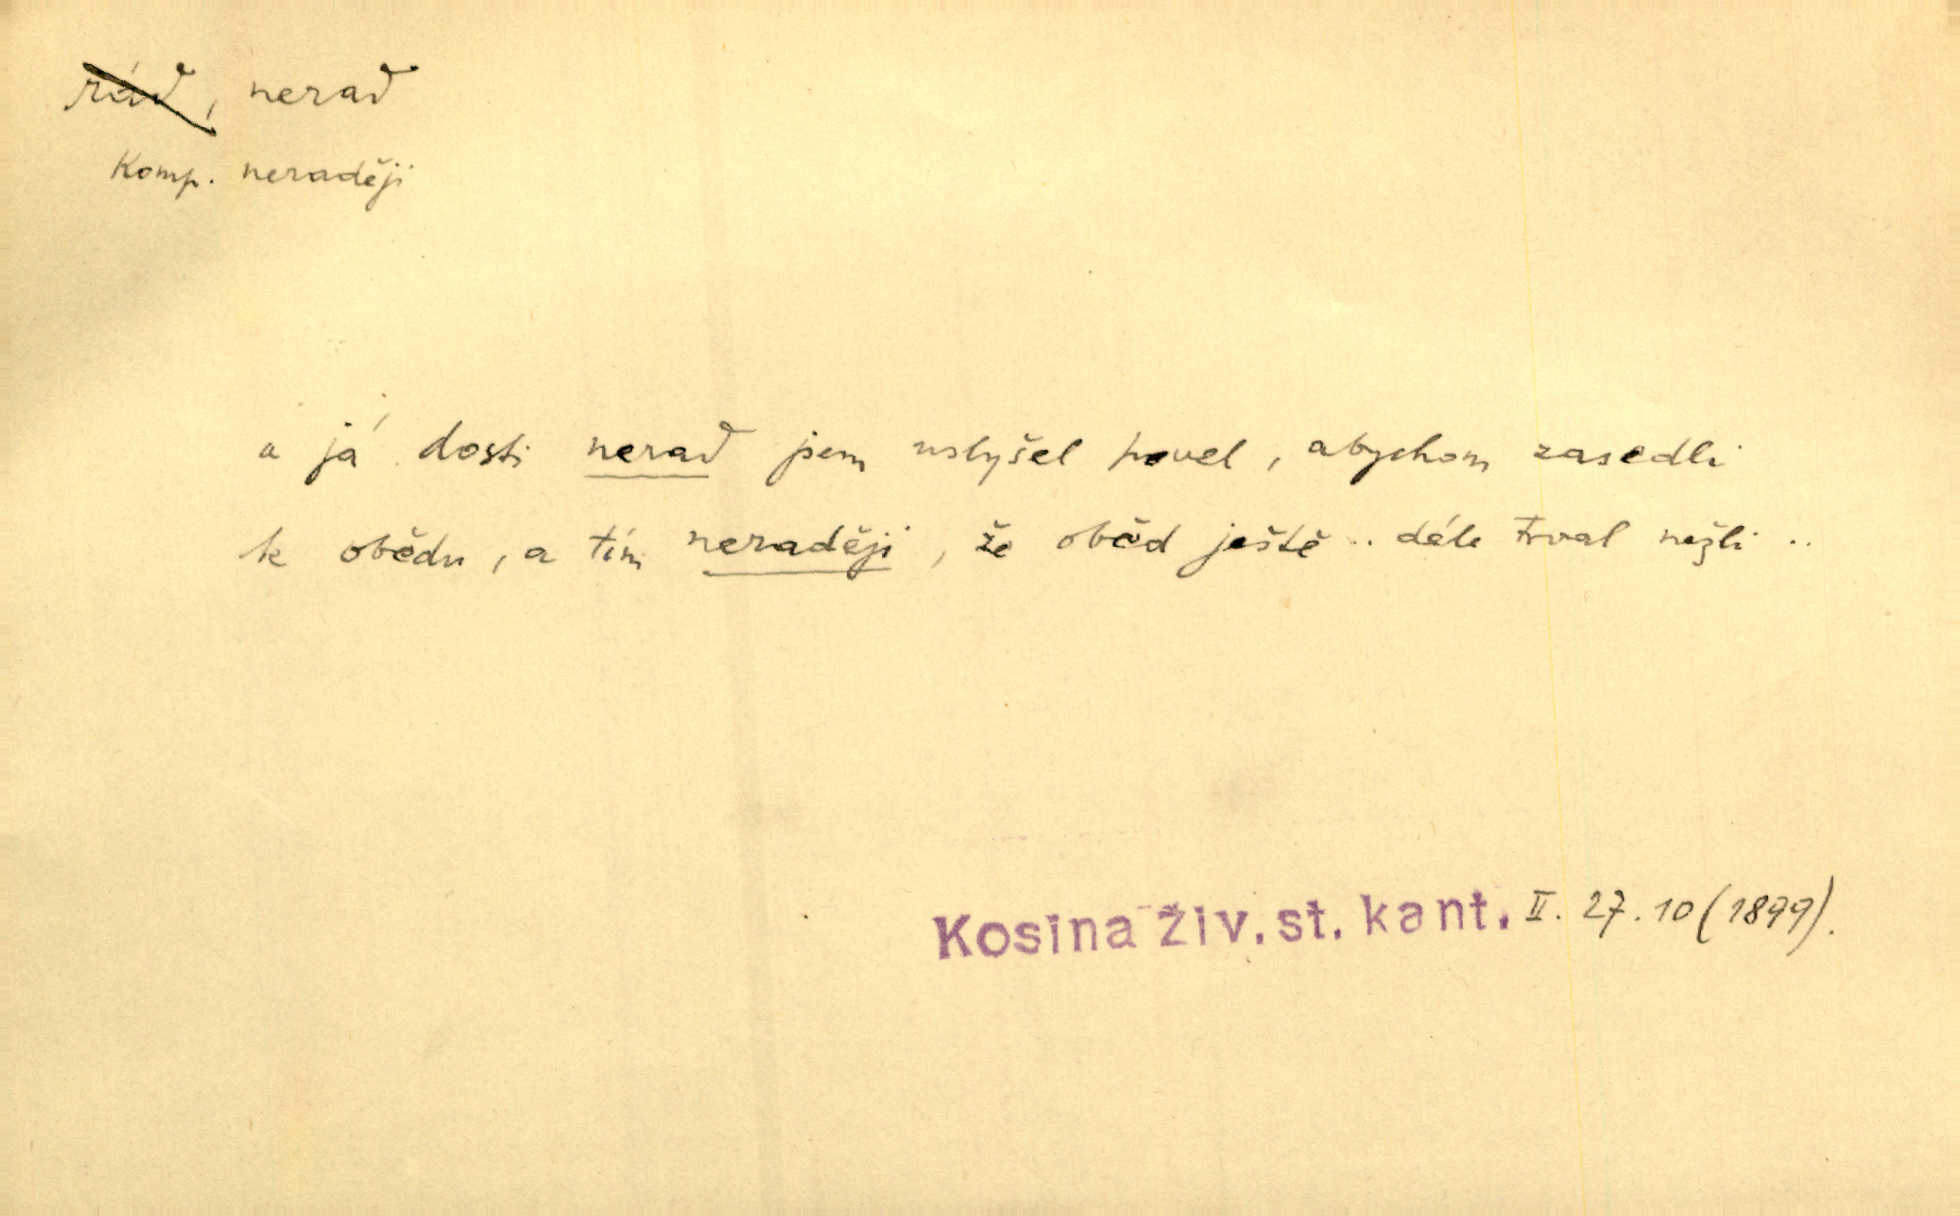 rád, nerad
Komp. neraději
a já dosti nerad jsem uslyšel povel, abychom zasedli
k obědu, a tím neraději, že oběd ještě .. déle trval nežli ..
Kosina živ. st. kant. II. 27. 10 (1899).